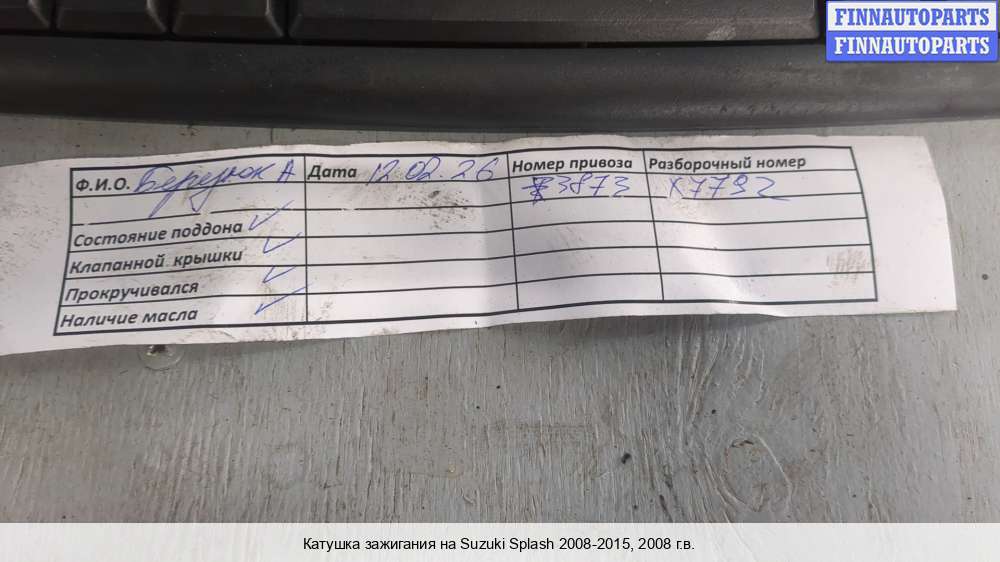 FINNAUTOPARTS
FINNAUTOPARTS
Ф.И.О. Березюк А Дата 12.02.26 Номер привоза Разборочный номер
3873 X7792
Состояние поддона ✓
Клапанной крышки ✓
Прокручивался ✓
Наличие масла ✓
Катушка зажигания на Suzuki Splash 2008-2015, 2008 г.в.